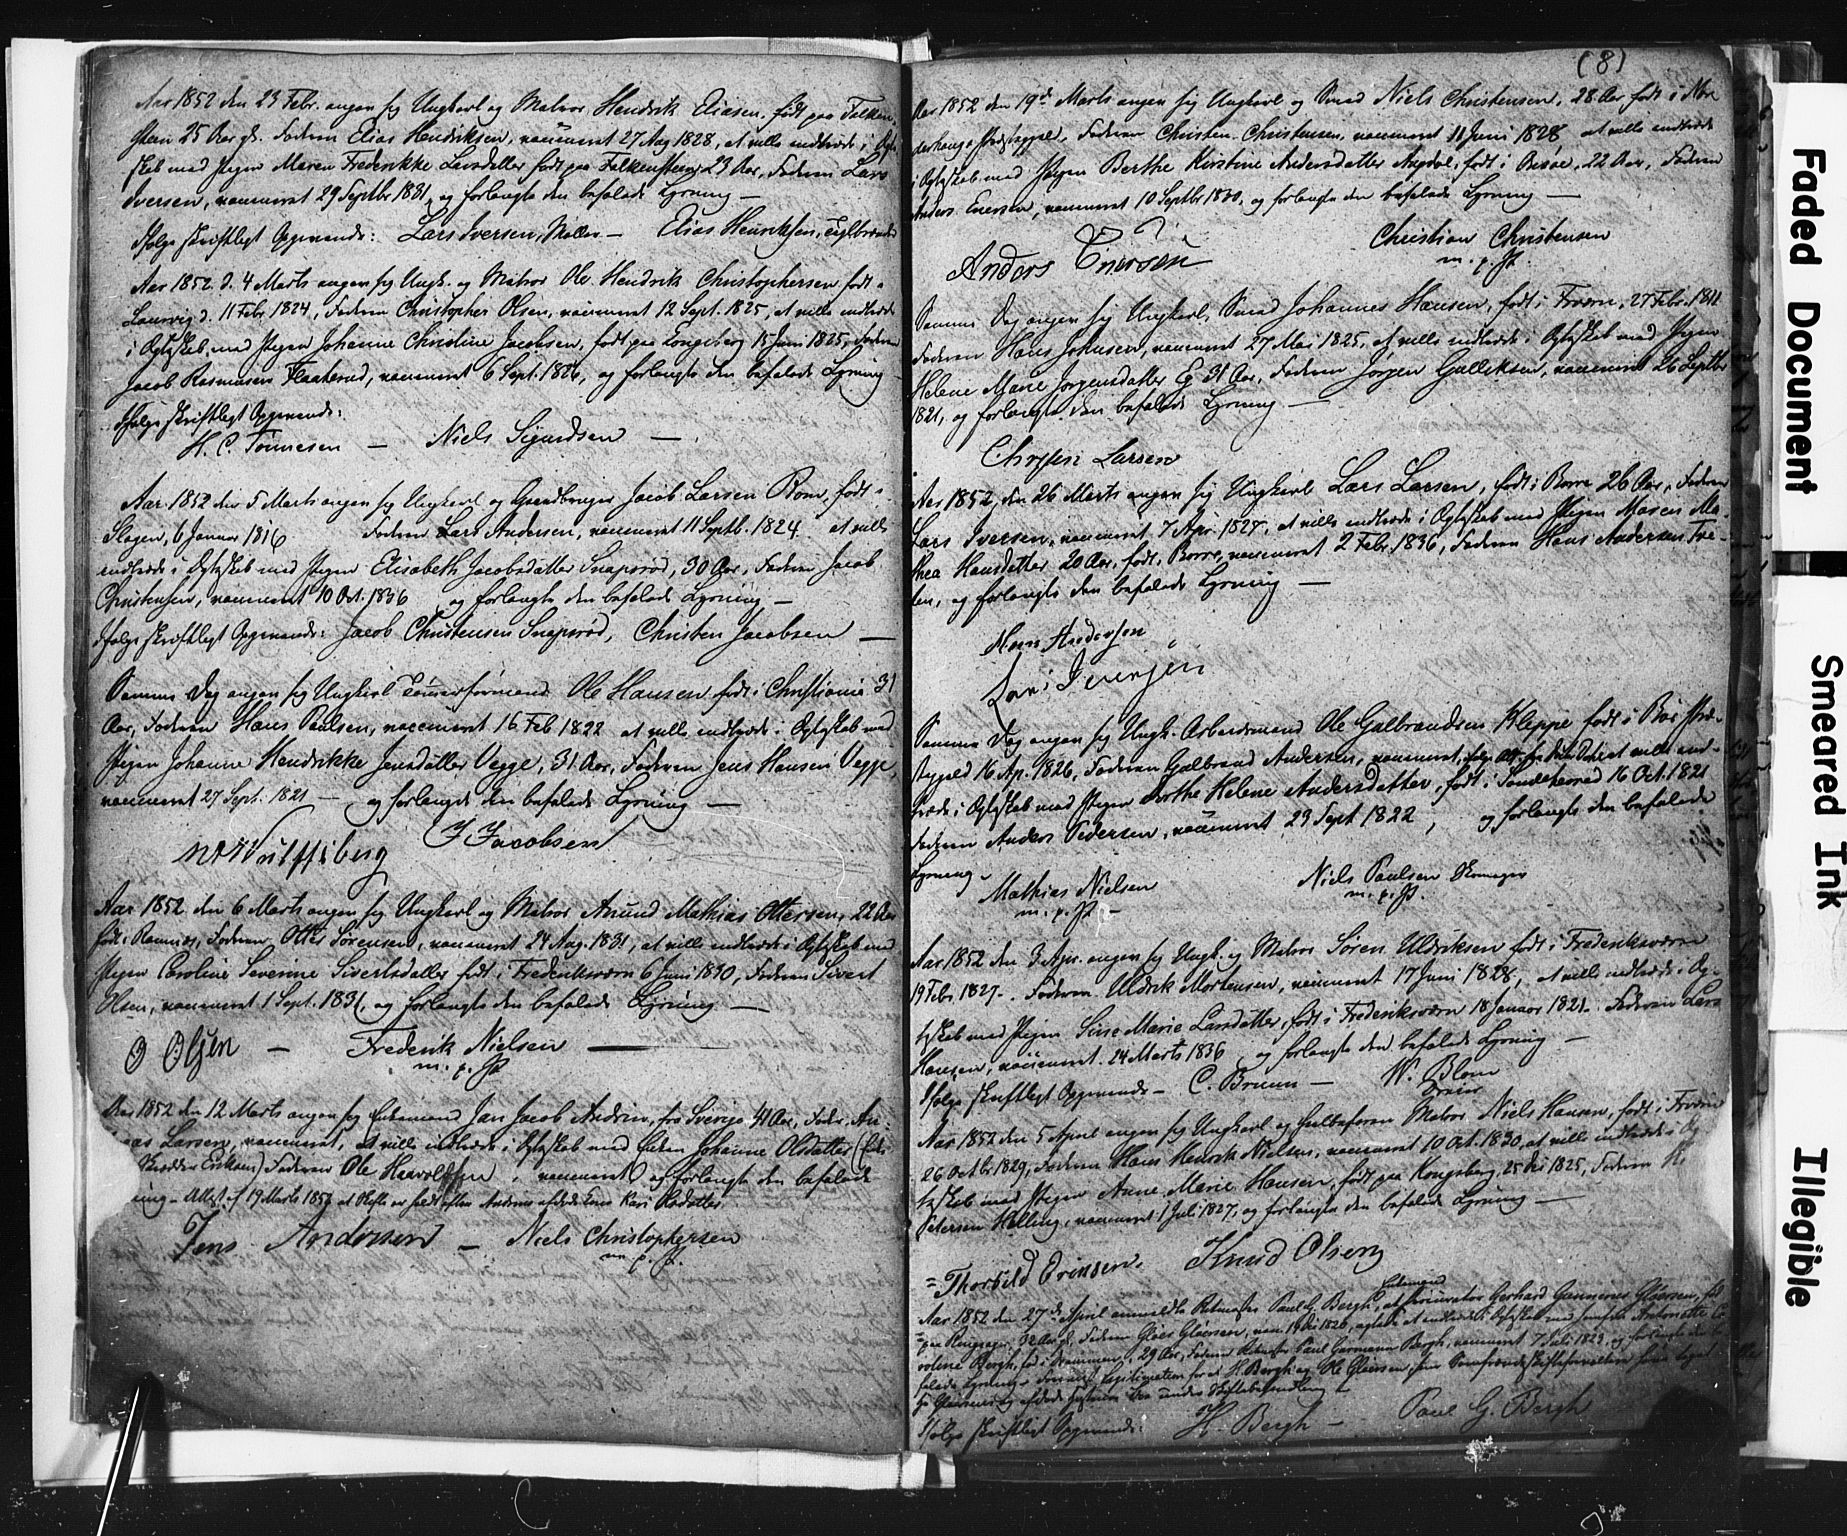 Aar 1852 den 23 Febr. angav sig Ungkarl og Matros Hendrik Eliasen, født paa Falken-
sten 25 Aar gl. Faderen Elias Hendriksen, vaccineret 27 Aug 1828, at ville indtræde i Ægte-
skab med Pigen Maren Frederikke Larsdatter født paa Falkensteen, 23 Aar, Faderen Lars
Iversen, vaccineret 29 Septbr 1831, og forlangte den befalede Lysning —
Ifølge skriftligt Opgivende: Lars Iversen, Møller — Elias Henriksen, Teglbrænder
Aar 1852 d. 4 Marts angav sig Ungk. og Matros Ole Hendrik Christophersen født i
Laurvig d. 11 Febr 1824, Faderen Christopher Olsen, vaccineret 12 Sept. 1825, at ville indtræde
i Ægteskab med Pigen Johanne Christine Jacobsen, født paa Longeberg 15 Juni 1825, Faderen
Jacob Rasmusen Flaaterød, vaccineret 6 Sept. 1826, og forlangte den befalede Lysning
Ifølge skriftligt Opgivende:
H. C. Tønnesen — Niels Sigurdsen —
Aar 1852 den 5 Marts angav sig Ungkarl og Gaardbruger Jacob Larsen Rom, født i
Slagen, 6 Januar 1816 Faderen Lars Andersen, vaccineret 11 Septb. 1824 at ville
indtræde i Ægteskab med Pigen Elisabeth Jacobsdatter Snapsrød, 30 Aar, Faderen Jacob
Christensen, vaccineret 10 Oct. 1836 og forlangte den befalede Lysning —
Ifølge skriftligt Opgivende: Jacob Christensen Snapsrød, Christen Jacobsen —
Samme Dag angav sig Ungkarl Tømmerformand Ole Hansen født i Christiania 31
Aar, Faderen Hans Paulsen, vaccineret 16 Feb 1822 at ville indtræde i Ægteskab med
Pigen Johanne Hendrikke Jensdatter Vegge, 31 Aar, Faderen Jens Hansen Vegge,
vaccineret 27 Sept. 1821 — og forlangte den befalede Lysning —
J. Jacobsen
Aar 1852 den 6 Marts angav sig Ungkarl og Matros Anund Mathias Ottersen, 22 Aar
født i Ramnes, Faderen Otter Sørensen, vaccineret 24 Aug. 1831, at ville indtræde i Ægteskab med
Pigen Caroline Severine Sivertsdatter født i Frederiksværn 6 Juni 1830, Faderen Sivert
Olsen, vaccineret 1 Sept. 1831, og forlangte den befalede Lysning —
O Olsen — Frederik Nielsen —
m. p. P.
Aar 1852 den 12 Marts angav sig Enkemand Jan Jacob Andrin, fra Sverige 41 Aar, Fader An-
Larsen, vaccineret, at ville indtræde i Ægteskab med Enken Johanne Olsdatter (Enke
Skrædder Eriksen) Faderen Ole Haavolsen, vaccineret og forlangte den befalede
ning — Attest af 19 Marts 1852 at Skifte er holdt efter Andrins afdøde Kone Kari Olsdatter
Jens Andersen — Niels Christophersen
m. p. P.
(8)
Aar 1852 den 19d Marts angav sig Ungkarl og Smed Niels Christensen, 28 Aar født i
Præstegjeld, Faderen Christen Christensen, vaccineret 11 Juni 1828 at ville indtræde
i Ægteskab med Pigen Berthe Kirstine Andersdatter født i 22 Aar, Faderen
Anders Enersen, vaccineret 10 Septbr 1830, og forlangte den befalede Lysning —
Anders Enersen Christian Christensen
m. p. P.
Samme Dag angav sig Ungkarl, Smed Johannes Hansen, født i 27 Febr. 1811
Faderen Hans Johnsen, vaccineret 27 Mai 1825, at ville indtræde i Ægteskab med Pigen
Helene Marie Jørgensdatter Eg 31 Aar, Faderen Jørgen Gulliksen, vaccineret 26 Septbr
1821, og forlangte den befalede Lysning —
Larsen
Aar 1852, den 26 Marts angav sig Ungkarl Lars Larsen, født i Borre 26 Aar, Faderen
Lars Iversen, vaccineret 7 Apr. 1827, at ville indtræde i Ægteskab med Pigen Maren Ma-
thea Hansdatter 20 Aar, født i Borre, vaccineret 2 Febr. 1836, Faderen Hans Andersen
og forlangte den befalede Lysning —
Hans Andersen
Lars Iversen
Samme Dag angav sig Ungk. Arbeidsmand Ole Gulbrandsen Kleppe født i Bøe Præ-
stegjeld 16 Ap. 1826, Faderen Gulbrand Andersen, vaccineret, at ville ind-
træde i Ægteskab med Pigen Berthe Helene Andersdatter, født i Sandeherred 16 Oct. 1821
Faderen Anders Pedersen, vaccineret 29 Sept 1822, og forlangte den befalede
Lysning.
Mathias Nielsen Niels Paulsen
m. p. P. — m. p. P.
Aar 1852 den 3 Apr. angav sig Ungk. og Matros Søren Uldriksen født i Frederiksværn
19 Febr. 1827. Faderen Uldrik Mortensen, vaccineret 17 Juni 1828, at ville indtræde i Æg-
teskab med Pigen Sine Marie Larsdatter, født i Frederiksværn 18 Januar 1821. Faderen Lars
Hansen, vaccineret 24 Marts 1836 og forlangte den befalede Lysning —
Ifølge skriftligt Opgivende — C. Bruun — W. Blom
Aar 1852 den 5 April angav sig Ungkarl og helbefaren Matros Niels Hansen, født i
26 Octbr 1829, Faderen Hans Henrik Nielsen, vaccineret 10 Oct. 1830, at ville indtræde i Æg-
teskab med Pigen Anne Marie Hansen, født paa Kongsberg 25 1825, Faderen
Petersen Helling, vaccineret 1 Juli 1827, og forlangte den befalede Lysning —
Thorkild Eriksen. Knud Olsen
Enkemand
Aar 1852 den 27de April anmeldte Paul G. Bergh, at Procurator Gerhard Gløersen, født
32 Aar gl. Faderen Gløer Gløersen, vac. 19 1826, agtede at indtræde i Ægteskab med Jomfru Antonette Ca-
roline Bergh, født i Drammen, 29 Aar, Faderen Paul Garmann Bergh, vaccineret 7 Juli 1823, og forlangte den be-
falede Lysning H. Bergh og Ole Gløersen,
Ifølge skriftligt Opgivende: H. Bergh — Paul G. Bergh
Faded Document
Smeared Ink
Illegible